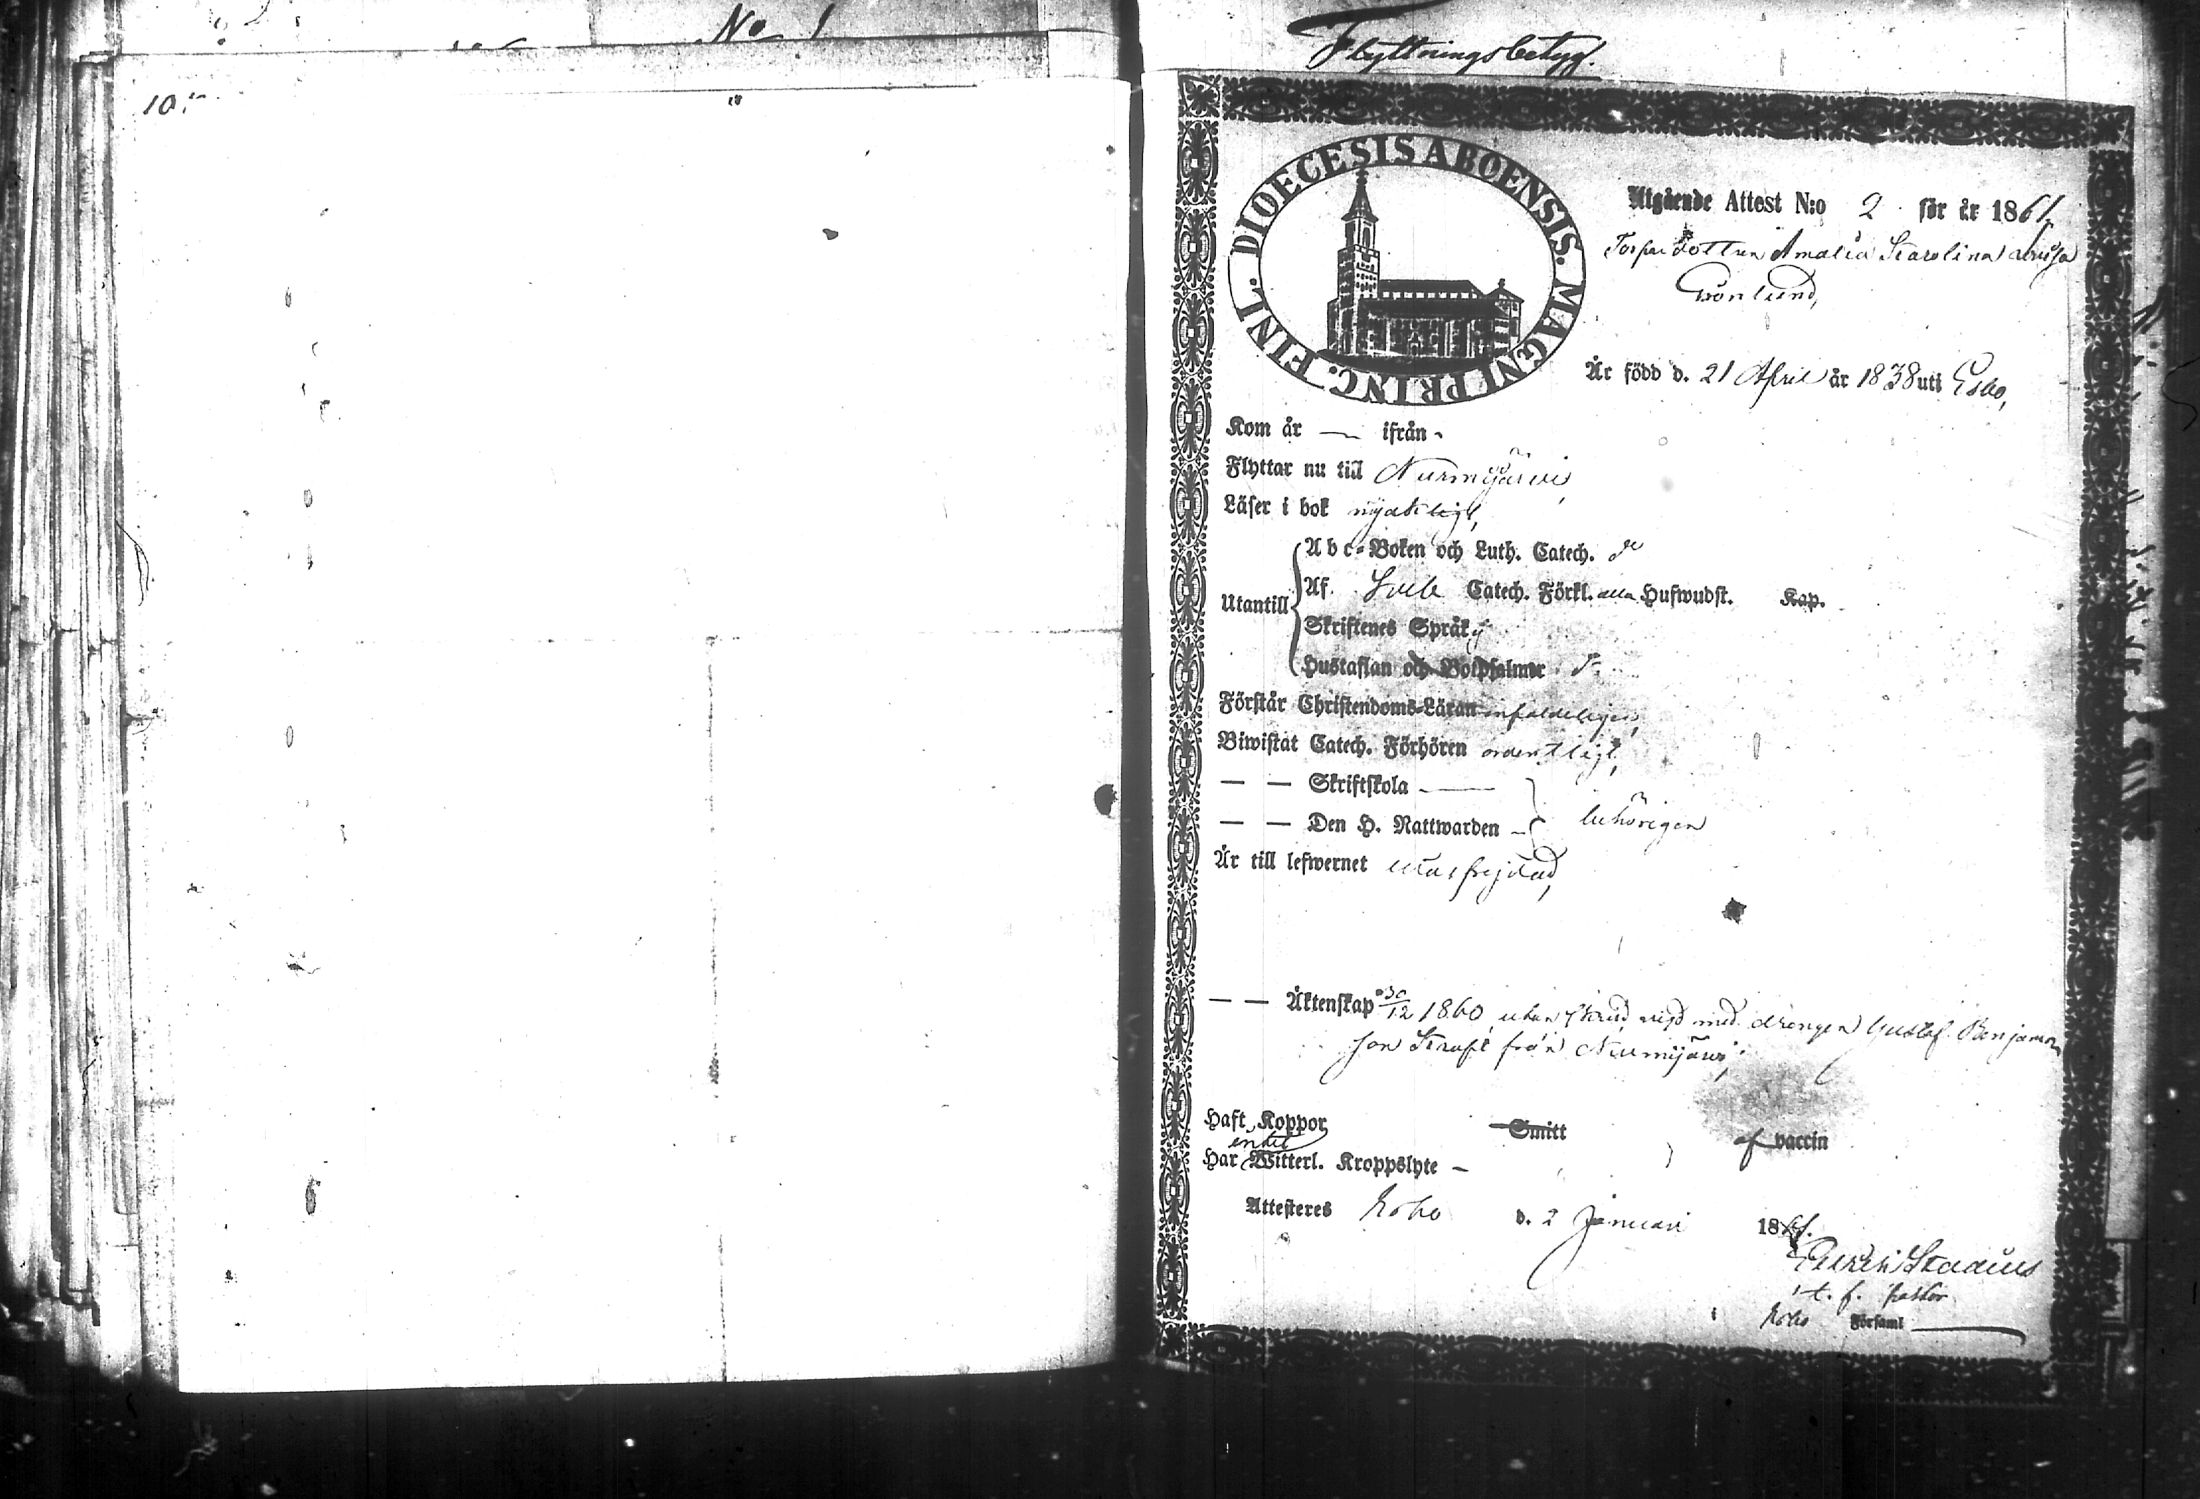 No 1
10.
Flyttningsbetyg.
DIOECESIS ABOENSIS. MAGNI PRINC. FINL.
Utgående Attest N:o 2 för år 1861.
Torpar dottren Amalia Karolina
Grönlund,
Är född d. 21 April år 1838 uti Esbo,
Kom år — ifrån -
Flyttar nu till Nurmijärvi,
Läser i bok nöjaktligt,
Abc-Boken och Luth. Catech. do
Utantill
Af. Sveb Catech. Förkl. alla Hufwudst. Kap.
Skriftenes Språk
Hustaflan och Botpsalmer do
Förstår Christendoms-Läran enfaldeligen,
Biwistat Catech. Förhören ordentligt,
— — Skriftskola —
— — Den H. Nattwarden — behörigen
Är till lefwernet wälfrejdad,
— — Äktenskap 30/12 1860, utan vigd med drengen Gustaf Benjamin
son från Nurmijärvi,
Haft Koppor Smitt af vaccin
enkel
Har Witterl. Kroppslyte —
Attesteras Esbo d. 2 Januari 1861.
t. f. pastor
Esbo Församl